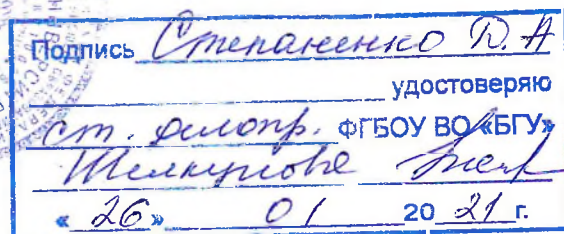 Подпись Степаненко Д. А
удостоверяю
ст. делопр. ФГБОУ ВО «БГУ»
« 26 » 01 20 21 г.